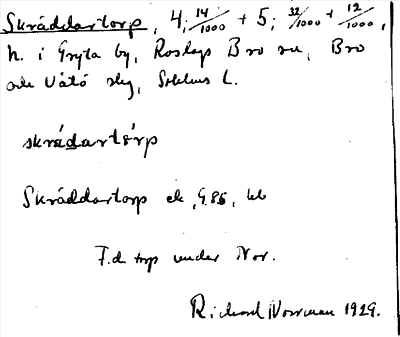 Skräddartorp, 4; 14/1000 + 5; 32/1000 + 12/1000,
h. i Gryta by, Roslags Bro sn, Bro
och Vätö skg, Sthlms L.
skrädartórp
Skräddartorp ek, G.86, bb
F.d. torp under Nor.
Richard Norrman 1929.